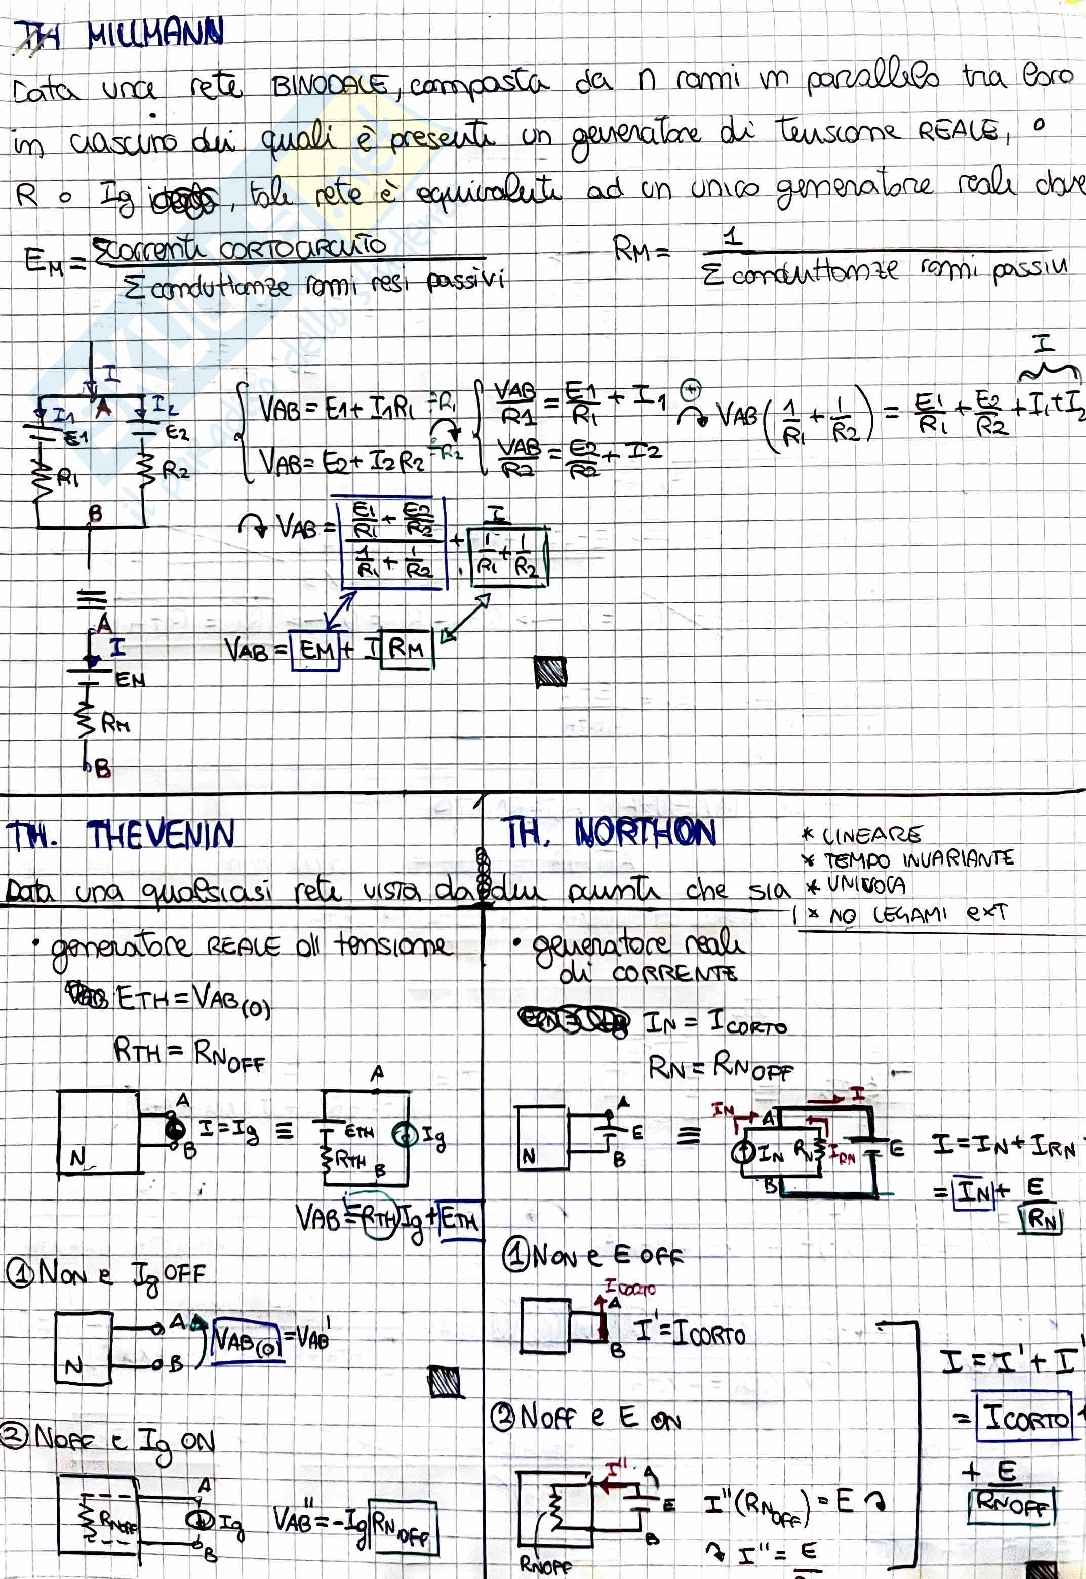 TH MILLMANN
Data una rete BINODALE, composta da n rami in parallelo tra loro
in ciascuno dei quali è presenti un generatore di tensione REALE, o
R o Ig, tale rete è equivalenti ad un unico generatore reali dove
EM = Σ correnti CORTOCIRCUITO / Σ conduttanze rami resi passivi
RM = 1 / Σ conduttanze rami passivi
I
I1 A I2
E1 E2
R1 R2
B
VAB = E1 + I1R1 ÷R1
VAB = E2 + I2R2 ÷R2
VAB/R1 = E1/R1 + I1
VAB/R2 = E2/R2 + I2
⊕ VAB (1/R1 + 1/R2) = E1/R1 + E2/R2 + I1 + I2
I
VAB = (E1/R1 + E2/R2) / (1/R1 + 1/R2) + I / (1/R1 + 1/R2)
VAB = EM + I RM
≡
A
I
EM
RM
B
TH. THEVENIN
TH. NORTHON
* LINEARE
* TEMPO INVARIANTE
* UNIVOCA
* NO LEGAMI EXT
Data una qualsiasi rete vista da due punti che sia
• generatore REALE di tensione
ETH = VAB(0)
RTH = RNOFF
N A B I = Ig ≡ A ETH RTH B Ig
VAB = -RTH Ig + ETH
① NON e Ig OFF
N A B VAB(0) = VAB'
② NOFF e Ig ON
RNOFF A B Ig VAB'' = -Ig RNOFF
• generatore reali
di CORRENTE
IN = ICORTO
RN = RNOFF
N A B E ≡ IN A IN RN IRN B I E
I = IN + IRN
= IN + E/RN
① NON e E OFF
ICORTO
A B I' = ICORTO
② NOFF e E ON
I'' A E B
RNOFF
I''(RNOFF) = E
I'' = E
I = I' + I'
= ICORTO +
+ E/RNOFF